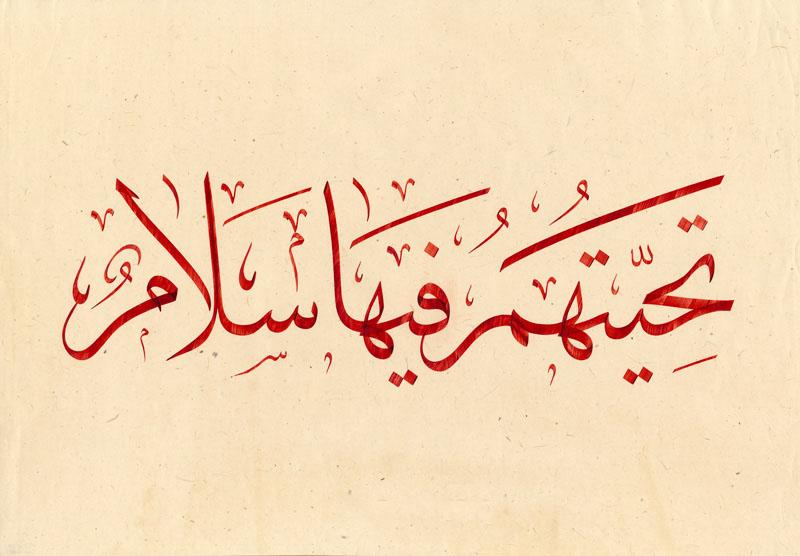 تحيّتهم فيها سلامٌ